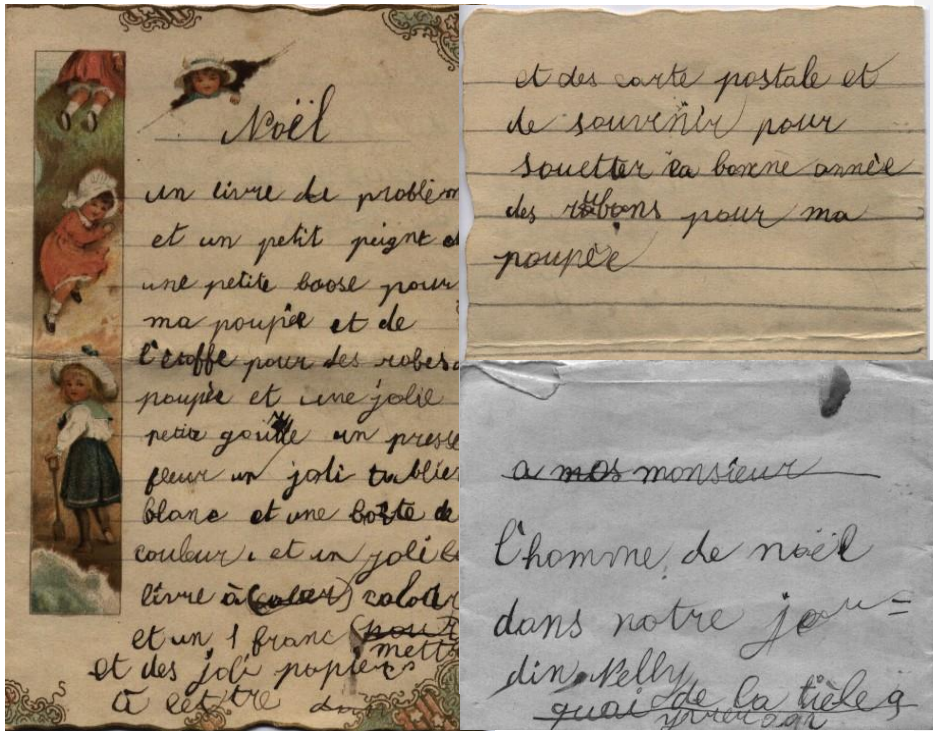 Noël
un livre de problèm
et un petit peigne et
une petite boose pour
ma poupée et de
l'étoffe pour des robes
poupée et une jolie
petite un presse
fleur un joli tablier
blanc et une boîte de
couleur et un joli
livre à colorier
et un 1 franc pour
mett
et des joli papiers
à lettre
et des carte postale et
de souvenir pour
souetter la bonne année
des rubans pour ma
poupée
a mos monsieur
l'homme de noël
dans notre jar=
din Nelly
quai de la